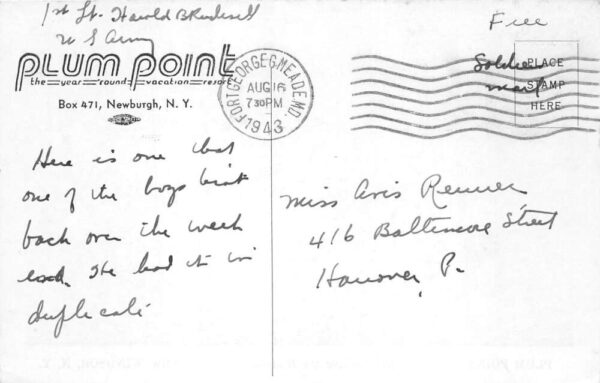 1st Lt. Harold B Rudisill
U S Army
Plum Point
the year 'round vacation resort
Box 471, Newburgh, N. Y.
Here is one that
one of the boys brot
back over the week
end. He had it in
duplicate
FORT GEORGE G. MEADE, MD.
AUG 16
7 30 PM
1943
Free
Soldier
mail
PLACE
STAMP
HERE
Miss Avis Renner
416 Baltimore Street
Hanover, Pa.